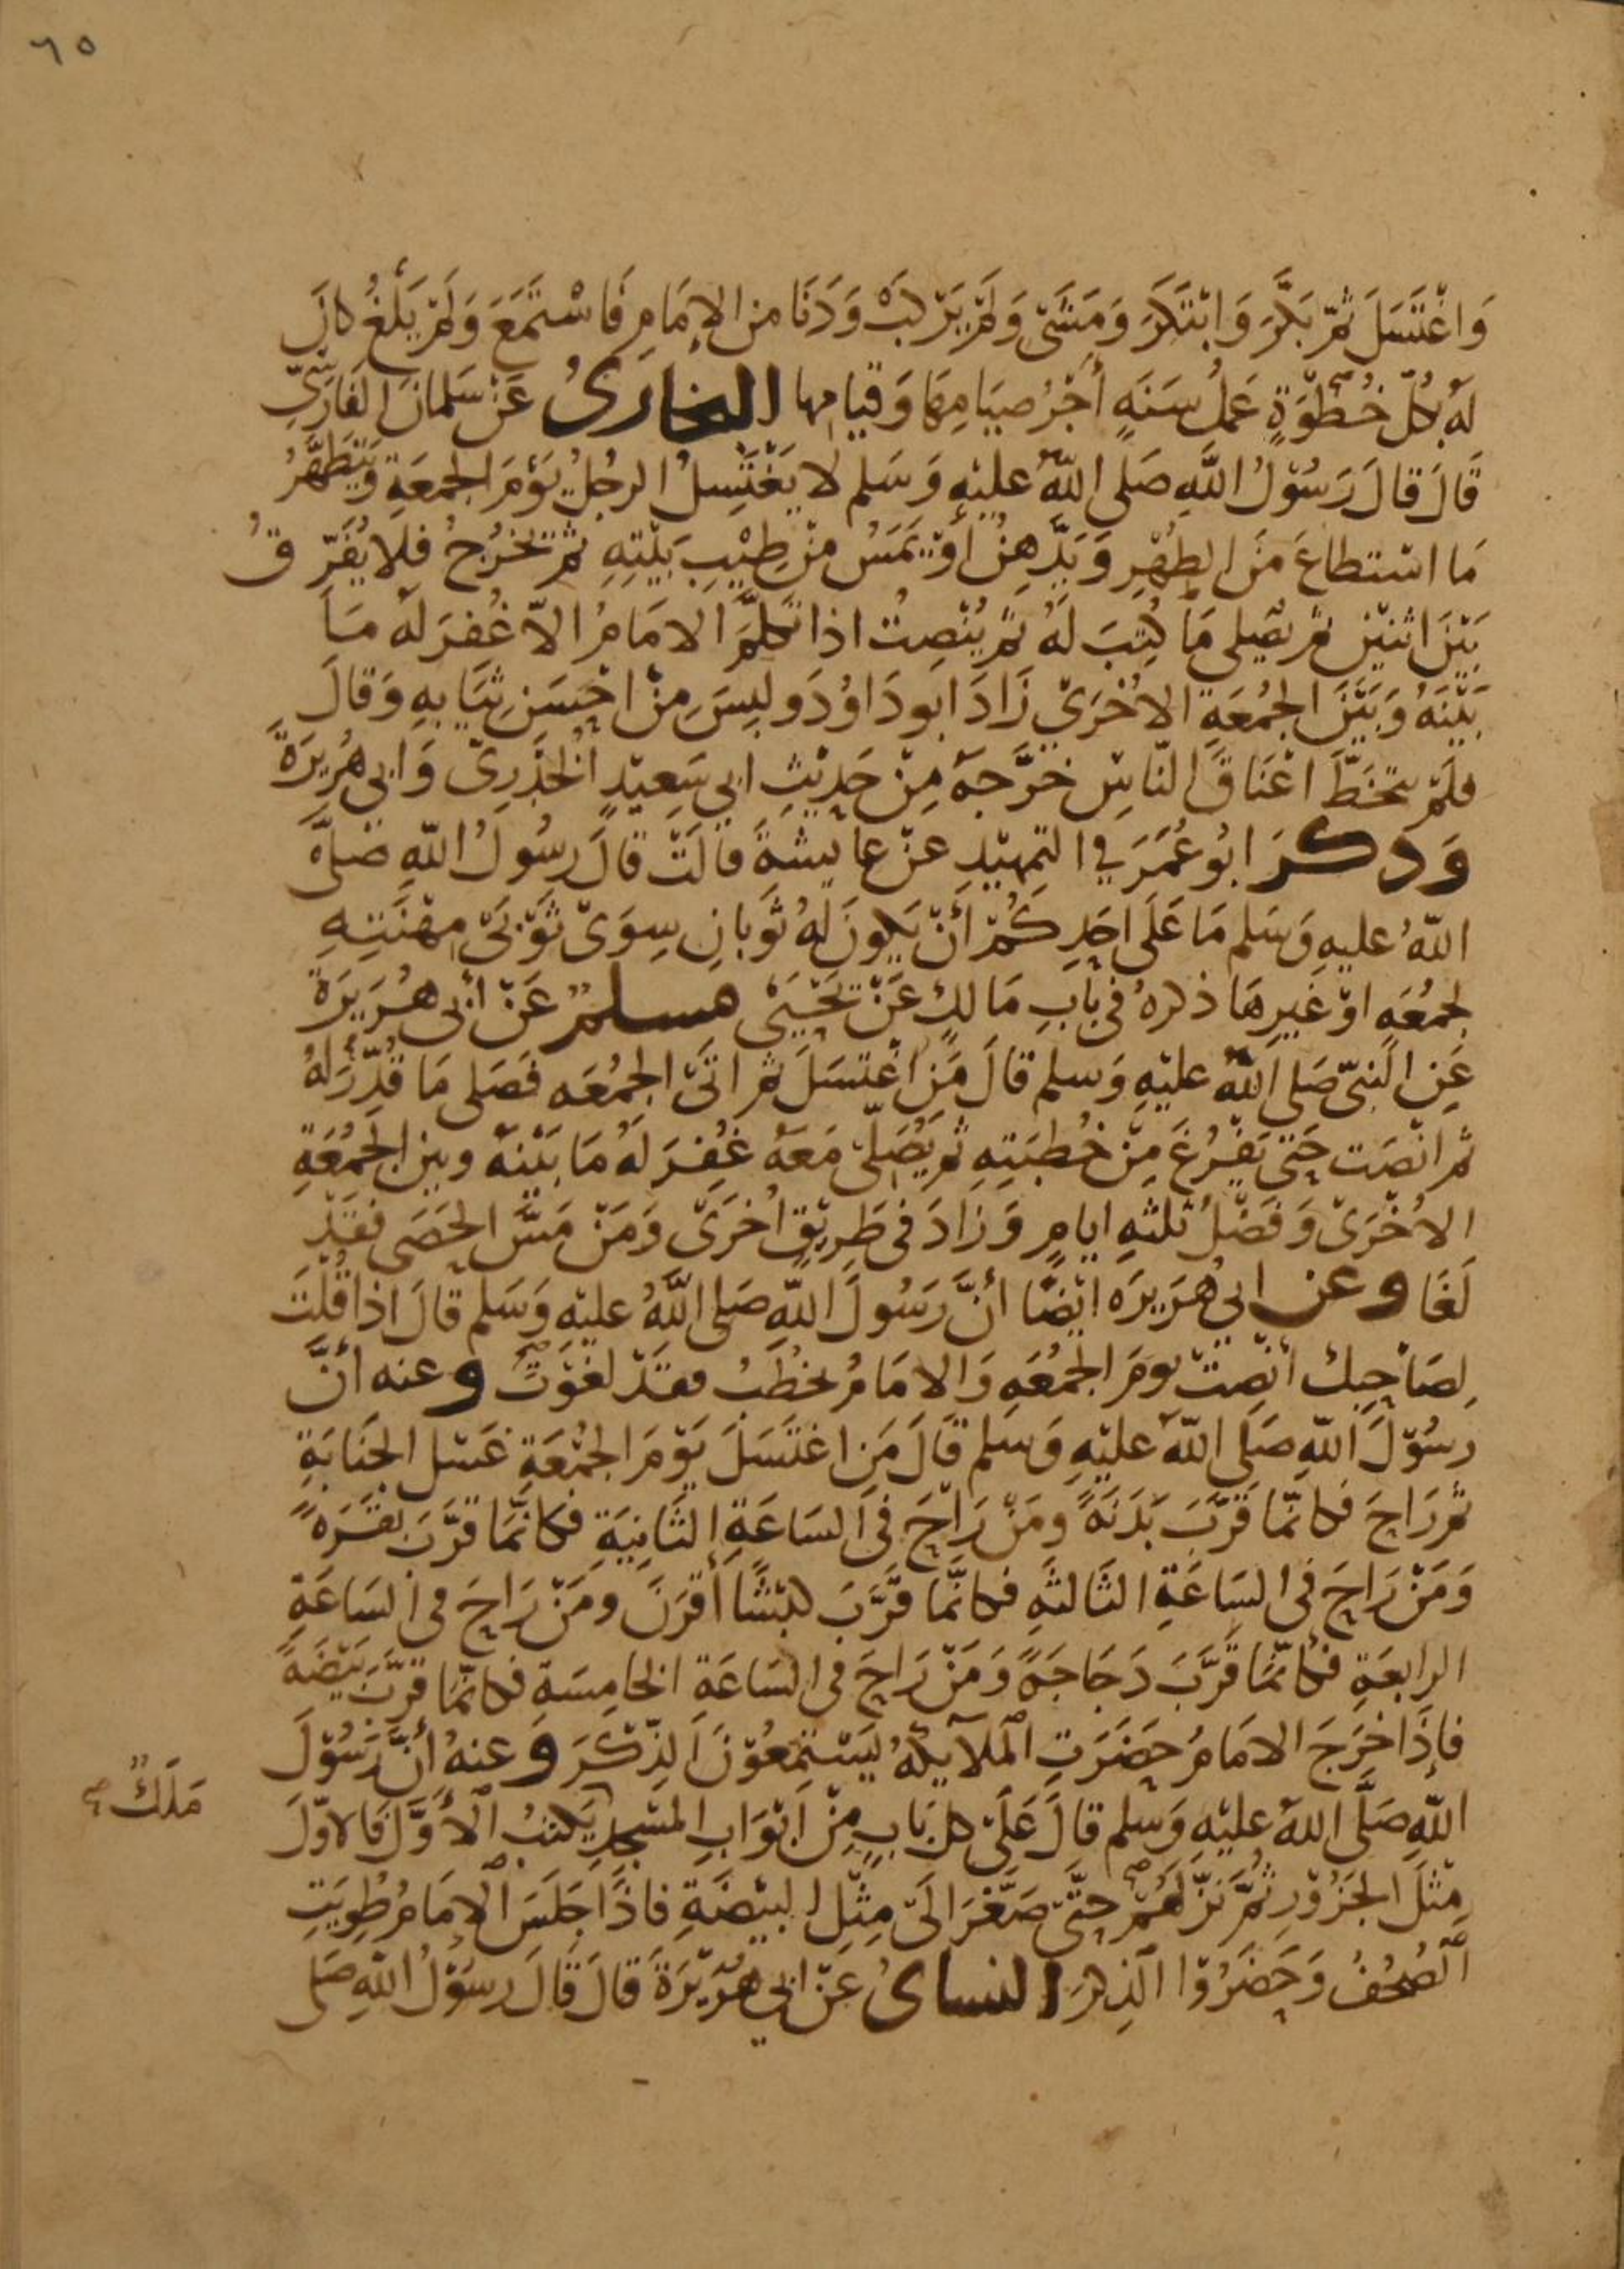 ٦٥
وَاغْتَسَلَ ثمّ بَكَّرَ وَابْتَكَرَ وَمَشَى وَلَمْ يَرْكبْ وَدَنَا من الإِمَامِ فَاسْتَمَعَ وَلَمْ يَلْغُ كانَ
لهُ بكُلّ خُطْوَةٍ عَمَلُ سَنَةٍ أجْرُ صيَامِهَا وَقيامها البخارىُ عَنْ سَلمانَ الفَارِسِّى
قَالَ قالَ رَسُوْلُ اللَّهِ صَلى اللّهُ عليْهِ وَسَلم لا يَغْتَسِلُ الرجُلُ يَوْمَ الجمعَةِ وَيَتَطَهَّرُ
مَا اسْتطاعَ منَ الطهْرِ وَيَدَّهِنُ أوْ يَمَسُ منْ طِيْبِ بَيْتِهِ ثمّ يخْرُجُ فلا يُفَرّقُ
بَيْنَ اثنَيْنِ ثم يصَلى مَا كُتِبَ لَهُ ثمّ يُنْصِتُ اذا تَكلَّمَ الامَامُ الاّ غُفرَ لهُ مَا
بَيْنَهُ وَبَيْنَ الجمُعَةِ الأخْرَىْ زَادَ ابو دَاوُدَ ولبِسَ مِنْ احْسَنِ ثيَابهِ وَقالَ
فلَمْ يتخَطَّ اعْنَاقَ النّاسِ خرَّجهُ مِنْ حَدِيْثِ ابي سَعِيْدٍ الخُذرِىّ وَابي هُرَيرَةَ
وَذكرَ ابُو عُمَرَ في التمهِيْدِ عنْ عايشةَ قالَتْ قالَ رسُولُ اللّهِ صَلَّى
اللّهُ عليهِ وَسَلم مَا عَلَى احَدِكُمْ أنْ يكونَ لهُ ثوْبانِ سِوَىْ ثوْبَىْ مِهْنَتِهِ
لجمُعَهِ اوْ غَيرِهَا ذكرهُ فى بابِ مَالكٍ عَنْ يَحْيَىْ مسلمٌ عَنْ أبى هُرَيرَةَ
عَنِ النبىّ صَلى اللّهُ عليْهِ وَسلم قالَ مَنِ اغْتسَلَ ثم اتَىْ الجمُعَه فَصَلى مَا قُدِّرَ لهُ
ثم انْصَت حَتى يَفْرُغَ مِنْ خُطبَتِهِ ثم يُصَلىّ مَعَهُ غُفِرَ لهُ مَا بَيْنهُ وبين الجُمُعَةِ
الأخْرَىْ وَفَضْلُ ثلثهِ ايامٍ وَزادَ فى طَرِيْقٍ اُخرَىْ وَمَنْ مَسَّ الحَصَى فقَدْ
لَغَا وعن ابى هُرَيرَه ايْضًا أنَّ رَسُولَ اللّهِ صَلى اللّهُ عليْهِ وَسَلم قالَ اذا قُلْتَ
لِصَاحِبِك أنْصِتْ يومَ الجمُعَهِ وَالامَامُ يخطُبُ فقَدْ لغَوْتَ وعنه أنَّ
رسُوْلَ اللّهِ صَلَى اللّهُ عليْهِ وَسلم قَالَ مَنِ اغتَسَلَ يَوْمَ الجمْعَةِ غسْل الجنَابَةِ
ثمّ رَاحَ فكانمّا قَرَّبَ بَدَنَةً ومَنْ رَاحَ فى السَاعَةِ الثانِيَةِ فكانَّمَا قرَّبَ بقَرَهً
وَمَنْ رَاحَ فى السَاعَةِ الثالثَهِ فكانَّمَا قرَّبَ كبْشًا أقرَنَ ومَنْ رَاحَ فى السَاعَةِ
الرابعَةِ فكانَّمَا قَرَّبَ دَجَاجَةً وَمَنْ رَاحَ فى السَاعَةِ الخامِسَةِ فكانمّا قرَّبَ بَيْضَةً
فإذَا خرَجَ الامَامُ حضَرَتِ الملآيكةُ يَسْتمعُوْنَ الذِّكْرَ وَعنهُ أنَّ رَسُوْلَ
اللّهِ صَلَّى اللّهُ عليْهِ وَسلم قالَ عَلَىْ كل بَابٍ مِنْ ابْوَابِ المَسْجِدِ يَكتبُ الأوَّلَ فَالأوّلَ
مَلَكٌ صح
مثْلَ الجَزُوْرِ ثمَّ نزّلهُمْ حَتَّى صَغَّرَ الَىْ مِثْلِ البيْضَةِ فاذَا جَلَسَ الإمَامُ طُوِيَتِ
الصُحُفُ وَحَضَرُوْا الذِكرَ النساىُ عنْ ابي هُرَيْرَةَ قالَ قالَ رسوْلُ اللّهِ صَلى